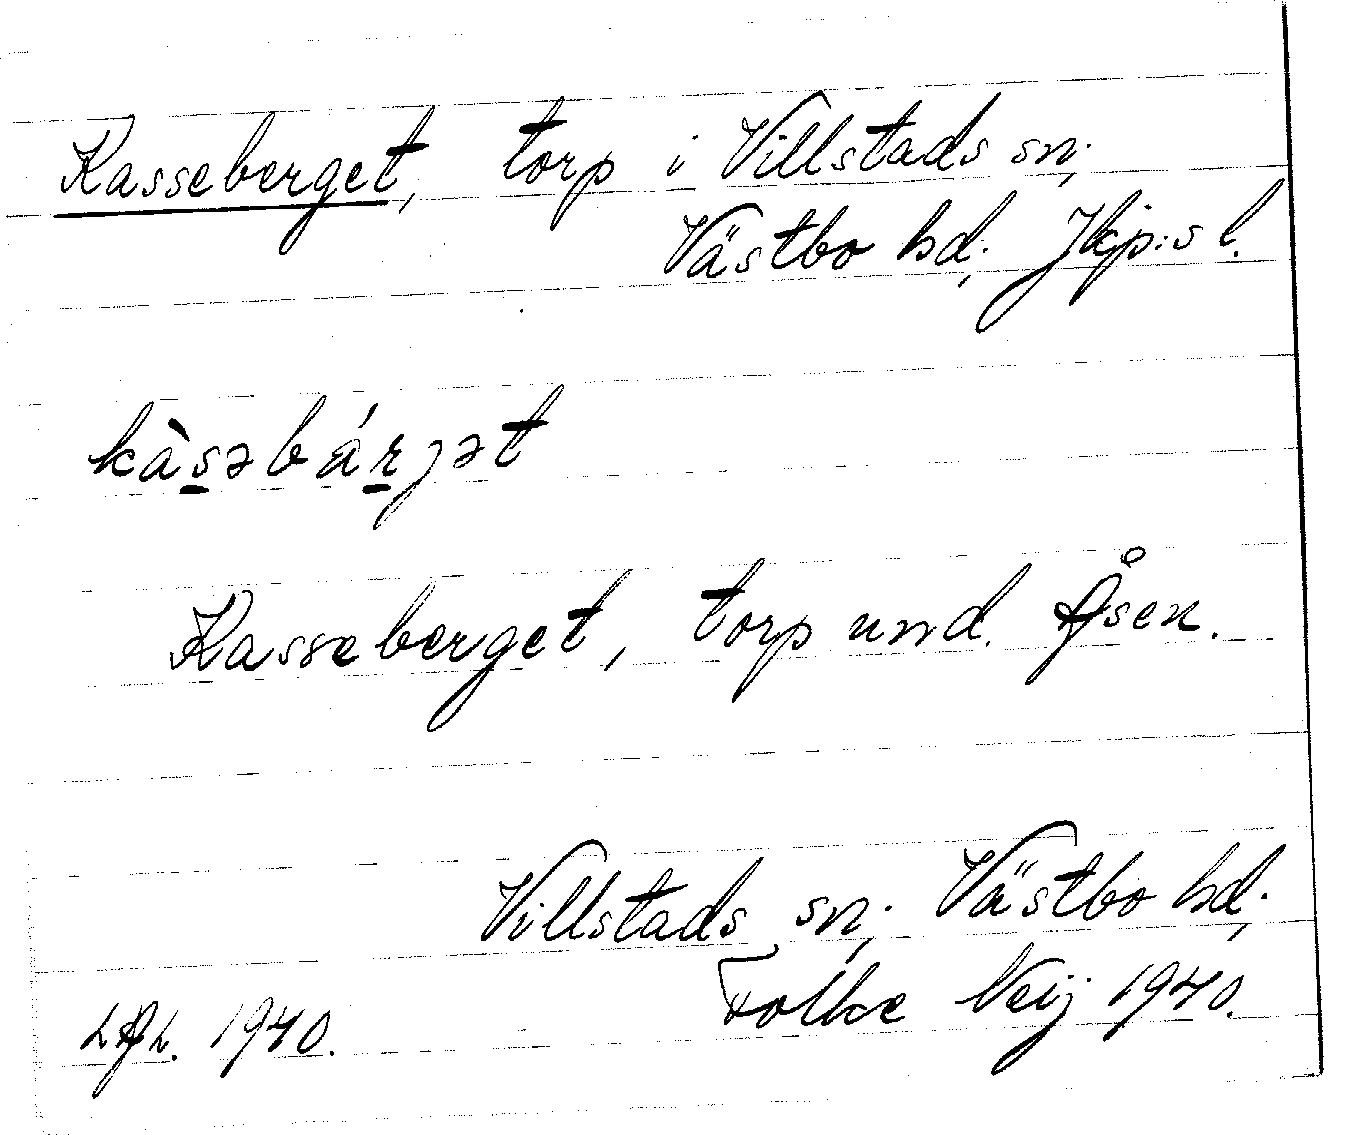 Kasseberget, torp i Villstads sn;
Västbo hd; Jkp:s l.
kàs̠əbár̠jət
Kasseberget, torp und. Åsen.
Villstads sn; Västbo hd;
Folke Neij 1940.
LAL. 1940.